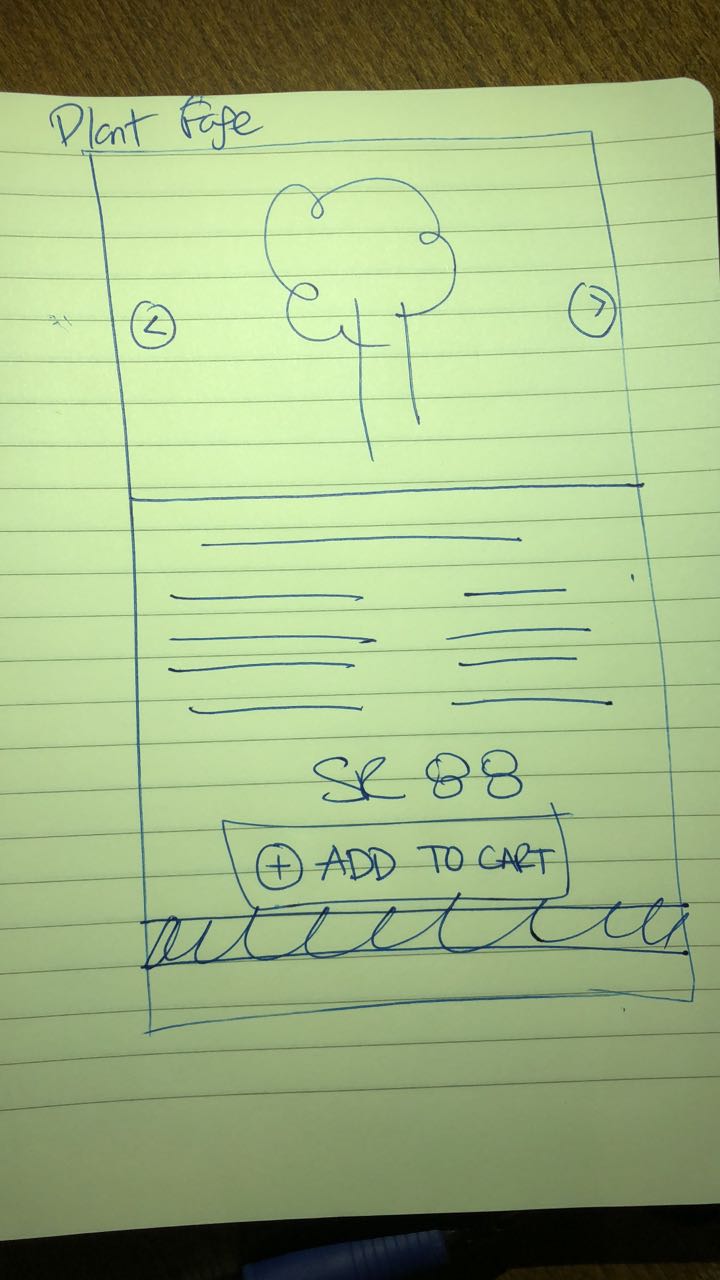 Plant Page
<
>
SR 88
+ ADD TO CART